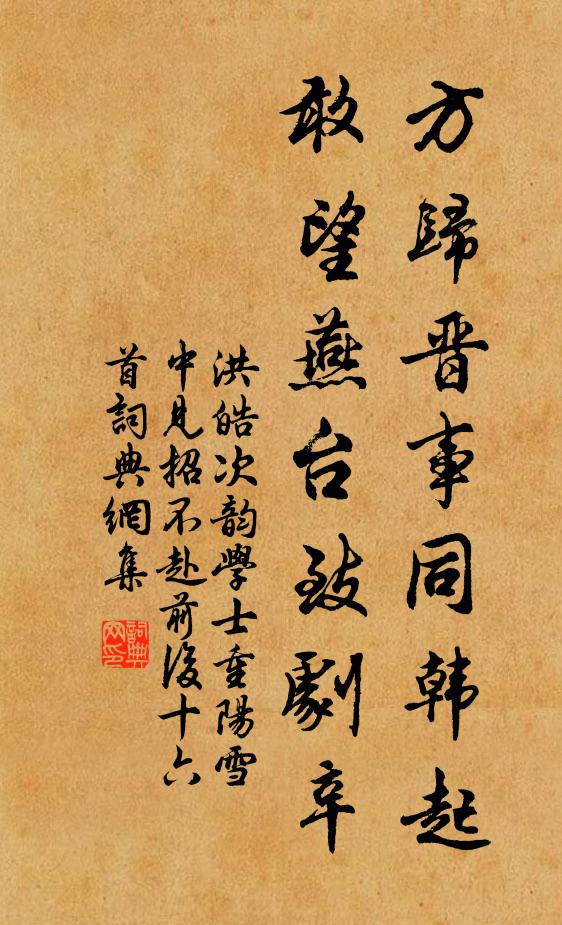 方歸晋事同韩起
敢望燕台致劇辛
洪皓次韵學士重陽雪
中見招不赴前後十六
首詞典網集
詞典
网印